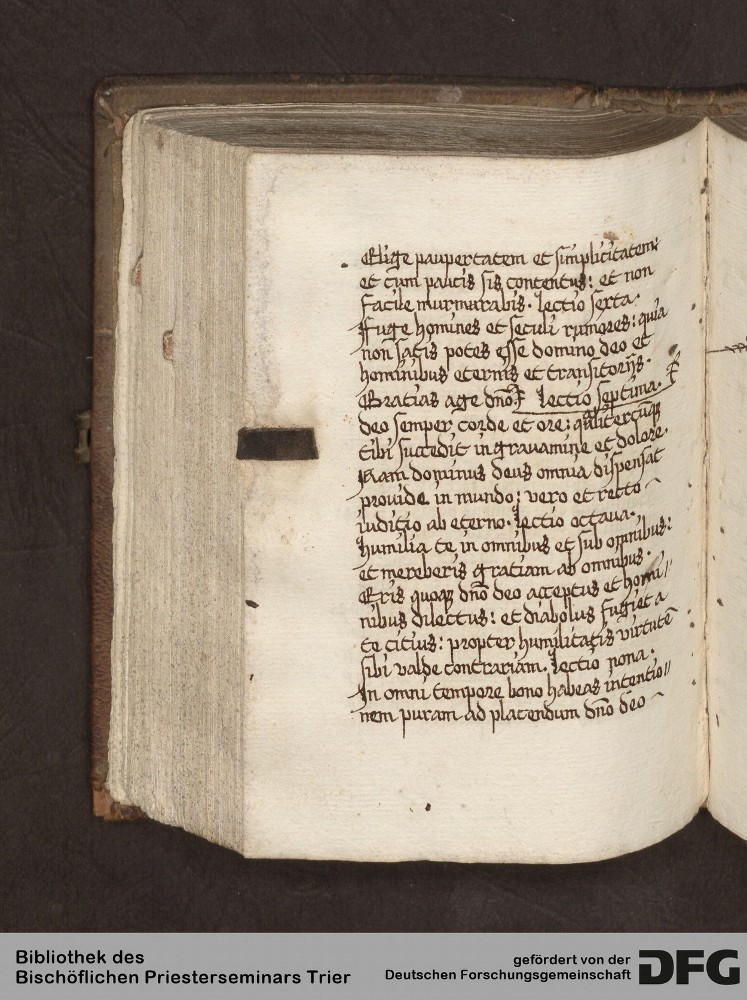 Elige paupertatem et simplicitatem:
et cum paucis sis contentus: et non
facile murmurabis. lectio sexta.
Fuge homines et seculi rumores: quia
non satis potes esse domino deo et
hominibus eternis et transitoriis.
Gratias age dno lectio septima.
deo semper corde et ore: qualitercunq
tibi succedit in gravamine et dolore.
Nam dominus deus omnia dispensat
provide in mundo: vero et recto
iuditio ab eterno. lectio octava.
humilia te in omnibus et sub omnibus:
et mereberis gratiam ab omnibus.
Eris quoq dno deo acceptus et homi//
nibus dilectus: et diabolus fugiet a
te citius: propter humilitatis virtutē
sibi valde contrariam. lectio nona.
In omni tempore bono habeas intentio//
nem puram ad placendum dno deo
Bibliothek des
Bischöflichen Priesterseminars Trier
gefördert von der
Deutschen Forschungsgemeinschaft
DFG